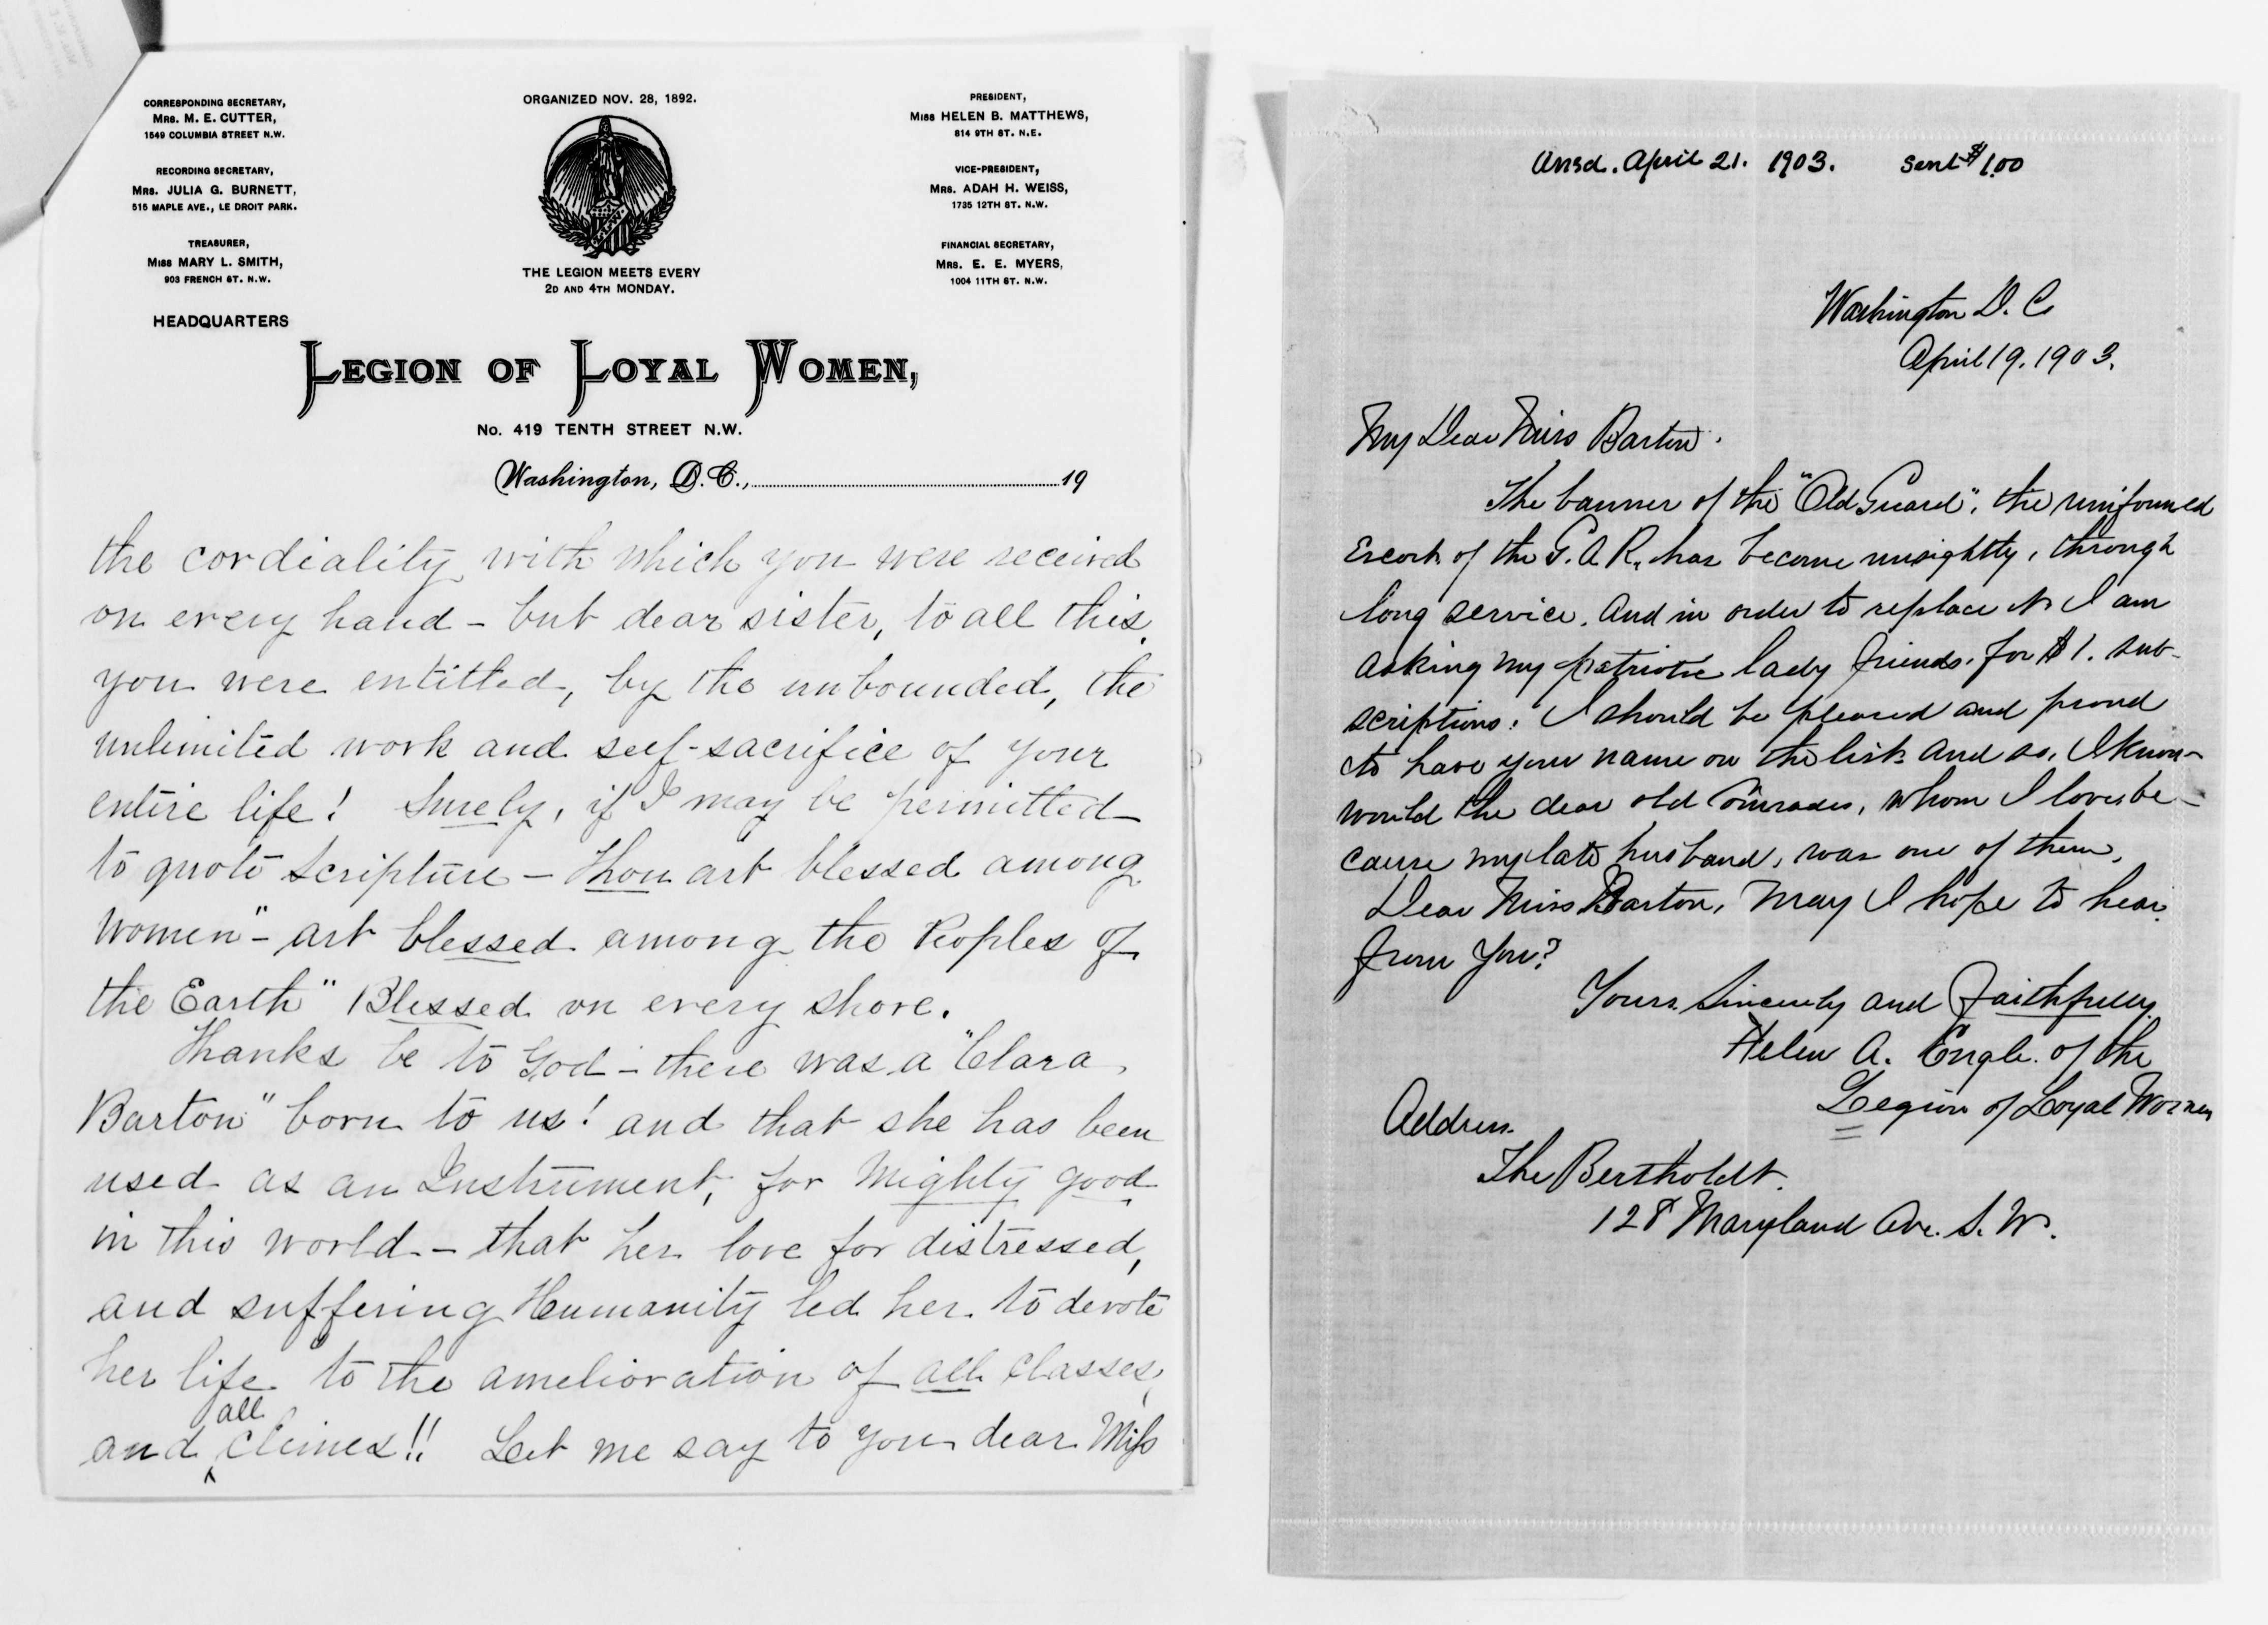 CORRESPONDING SECRETARY,
MRS. M. E. CUTTER,
1549 COLUMBIA STREET N.W.
RECORDING SECRETARY,
MRS. JULIA G. BURNETT,
515 MAPLE AVE., LE DROIT PARK.
TREASURER,
MISS MARY L. SMITH,
903 FRENCH ST. N.W.
HEADQUARTERS
ORGANIZED NOV. 28, 1892.
THE LEGION MEETS EVERY
2D AND 4TH MONDAY.
PRESIDENT,
MISS HELEN B. MATTHEWS,
814 9TH ST. N.E.
VICE-PRESIDENT,
MRS. ADAH H. WEISS,
1735 12TH ST. N.W.
FINANCIAL SECRETARY,
MRS. E. E. MYERS,
1004 11TH ST. N.W.
LEGION OF LOYAL WOMEN,
No. 419 TENTH STREET N.W.
Washington, D.C., 19
the cordiality with which you were received
on every hand - but dear sister, to all this,
you were entitled, by the unbounded, the
unlimited work and self-sacrifice of your
entire life! Surely, if I may be permitted
to quote Scripture - Thou art blessed among
Women" - art blessed among the Peoples of
the Earth" Blessed on every shore.
Thanks be to God - there was a "Clara
Barton" born to us! and that she has been
used as an Instrument, for Mighty good
in this world - that her love for distressed,
and suffering Humanity led her to devote
her life to the amelioration of all classes,
and all climes!! Let me say to you dear Miss
Ansd. April 21. 1903. Sent $1.00
Washington D. C.
April 19. 1903.
My Dear Miss Barton.
The banner of the "Old Guard", the uniformed
Escort of the G.A.R. has become unsightly, through
long service. And in order to replace it I am
asking my patriotic lady friends for $1. sub-
scriptions. I should be pleased and proud
to have your name on the list and so, I know
would the dear old Comrades, whom I love be-
cause my late husband, was one of them.
Dear Miss Barton, May I hope to hear
from You?
Yours Sincerely and Faithfully
Helen A. Engle of the
Legion of Loyal Women
Address.
The Bertholdt.
128 Maryland Ave. S. W.